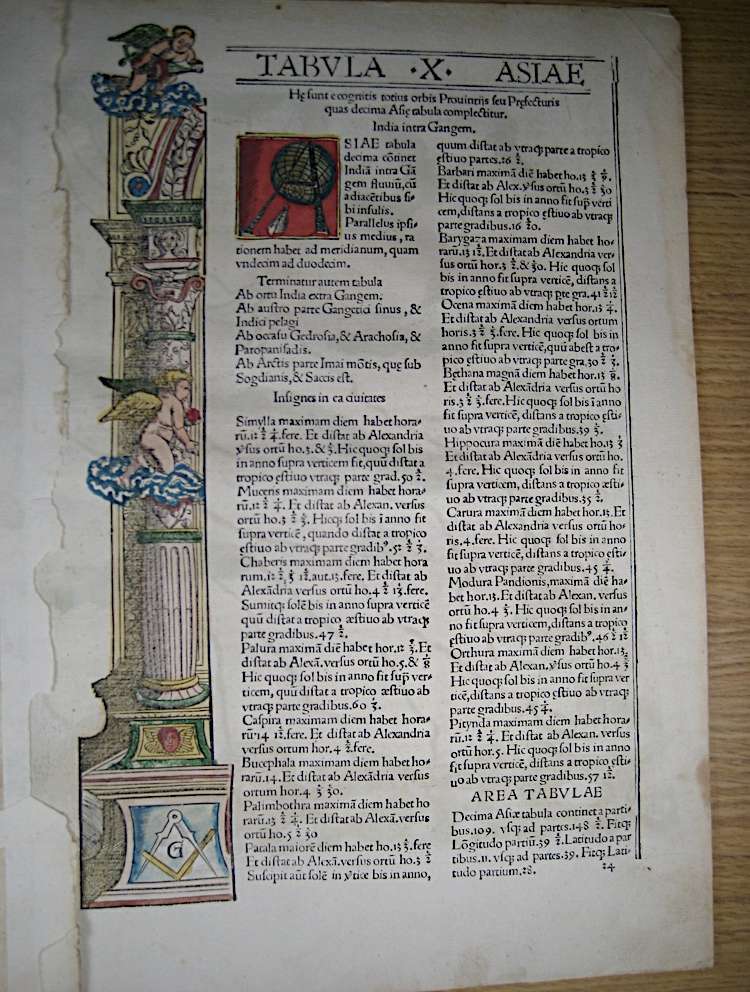 TABVLA ·X· ASIAE
Hę sunt e cognitis totius orbis Prouincijs seu Pręfecturis
quas decima Asię tabula complectitur.
India intra Gangem.
SIAE tabula
decima cōtinet
Indiā intra Gā
gem fluuiū, cū
adiacētibus si⸗
bi insulis.
Parallelus ipsi⸗
us medius, ra
tionem habet ad meridianum, quam
vndecim ad duodecim.
Terminatur autem tabula
Ab ortu India extra Gangem.
Ab austro parte Gangetici sinus, &
Indici pelagi
Ab occasu Gedrosia, & Arachosia, &
Paropanisadis.
Ab Arctis parte Imai mōtis, quę sub
Sogdianis, & Saccis est.
Insignes in ea ciuitates
Simylla maximam diem habet hora⸗
rū.12 ½ ¼.fere. Et distat ab Alexandria
v̓sus ortū ho.3. & ⅓. Hic quoqꝫ sol bis
in anno supra verticem fit, quū distat a
tropico ęstiuo vtraqꝫ parte grad.50 ½
Mucens maximam diem habet hora⸗
rū.12 ½ ¼. Et distat ab Alexan. versus
ortū ho.3 ½ ⅓. Hicqꝫ sol bis ī anno fit
supra verticē, quando distat a tropico
ęstiuo ab vtraqꝫ parte gradibꝰ.52 ½ ⅓.
Chaberis maximam diem habet hora
rum.12. ½ ⅓ 12.aut.13.fere. Et distat ab
Alexādria versus ortū ho.4 ½ 13.fere.
Sumitqꝫ solē bis in anno supra verticē
quū distat a tropico æstiuo ab vtraqꝫ
parte gradibus.47 ½.
Palura maximā diē habet hor.12 ⅔.Et
distat ab Alexā.versus ortū ho.5.& ⅛
Hic quoqꝫ sol bis in anno fit sup̄ ver⸗
ticem, quū distat a tropico æstiuo ab
vtraqꝫ parte gradibus.60 ⅔.
Caspira maximam diem habet hora⸗
rū.14 12.fere. Et distat ab Alexandria
versus ortum hor.4 ½.fere.
Bucephala maximam diem habet ho⸗
rarū.14. Et distat ab Alexādria versus
ortum hor.4 ⅓ 30.
Palimbothra maximam diem habet ho
rarū.13 ½ ¼. Et distat ab Alexā.versus
ortū ho.5 ½ 30
Patala maiorē diem habet ho.13 ⅓.fere
Et distat ab Alexā.versus ortū ho.3 ½
Suscipit aūt solē in v̓tice bis in anno,
quum distat ab vtraqꝫ parte a tropico
ęstiuo partes.16 ½.
Barbari maximā diē habet ho.13
Et distat ab Alex.v̓sus ortū ho.3 ½ 30
Hic quoqꝫ sol bis in anno fit sup̄ verti
cem, distans a tropico ęstiuo ab vtraqꝫ
parte gradibus.16 20.
Barygaza maximam diem habet ho⸗
rarū.13 12.Et distat ab Alexandria ver⸗
sus ortū hor.3 ½.& 30. Hic quoqꝫ sol
bis in anno fit supra verticē, distans a
tropico ęstiuo ab vtraqꝫ pte gra.41 ½ 12
Ocena maximā diem habet hor.13 ¼.
Et distat ab Alexandria versus ortum
horis.3 ½ ⅓.fere. Hic quoqꝫ sol bis in
anno fit supra verticē, quū abest a tro⸗
pico ęstiuo ab vtraqꝫ parte gra.30 ½ ⅓.
Bethana magnā diem habet hor.13 ⅙.
Et distat ab Alexādria versus ortū ho
ris.3 ½ ⅓.fere.Hic quoqꝫ sol bis ī anno
fit supra verticē, distans a tropico ęsti⸗
uo ab vtraqꝫ parte gradibus.39 ⅓.
Hippocura maximā diē habet ho.13 ⅓
Et distat ab Alexādria versus ortū ho
.4.fere. Hic quoqꝫ sol bis in anno fit
supra verticē, distans a tropico æsti⸗
uo ab vtraqꝫ parte gradibus.35 ½.
Carura maximā diem habet ho.13. Et
distat ab Alexandria versus ortū ho⸗
ris.4.fere. Hic quoqꝫ sol bis in anno
fit supra verticē, distans a tropico ęsti⸗
uo ab vtraqꝫ parte gradibus.45 ¼
Modura Pandionis, maximā diē ha⸗
bet hor.13. Et distat ab Alexan. versus
ortū ho.4 ⅓. Hic quoqꝫ sol bis in an⸗
no fit supra verticem, distans a tropico
ęstiuo ab vtraqꝫ parte gradibꝰ.46 ½ 12
Orthura maximā diem habet hor.13.
Et distat ab Alexan.v̓sus ortū ho.4 ⅓
Hic quoqꝫ sol bis in anno fit supra ver
ticē, distans a tropico ęstiuo ab vtraqꝫ
parte gradibus.45 ¼.
Pitynda maximam diem habet hora⸗
rū.12 ½ ¼. Et distat ab Alexan. versus
ortū hor.5. Hic quoqꝫ sol bis in anno
fit supra verticē, distans a tropico ęsti⸗
uo ab vtraqꝫ parte gradibus.57 12.
AREA TABVLAE
Decima Asiæ tabula continet a parti⸗
bus.109. vsqꝫ ad partes.148 ½. Fitqꝫ
Lōgitudo partiū.39 ½. Latitudo a par
tibus.11. vsqꝫ ad partes.39. Fitqꝫ Lati⸗
tudo partium.28. 24
G